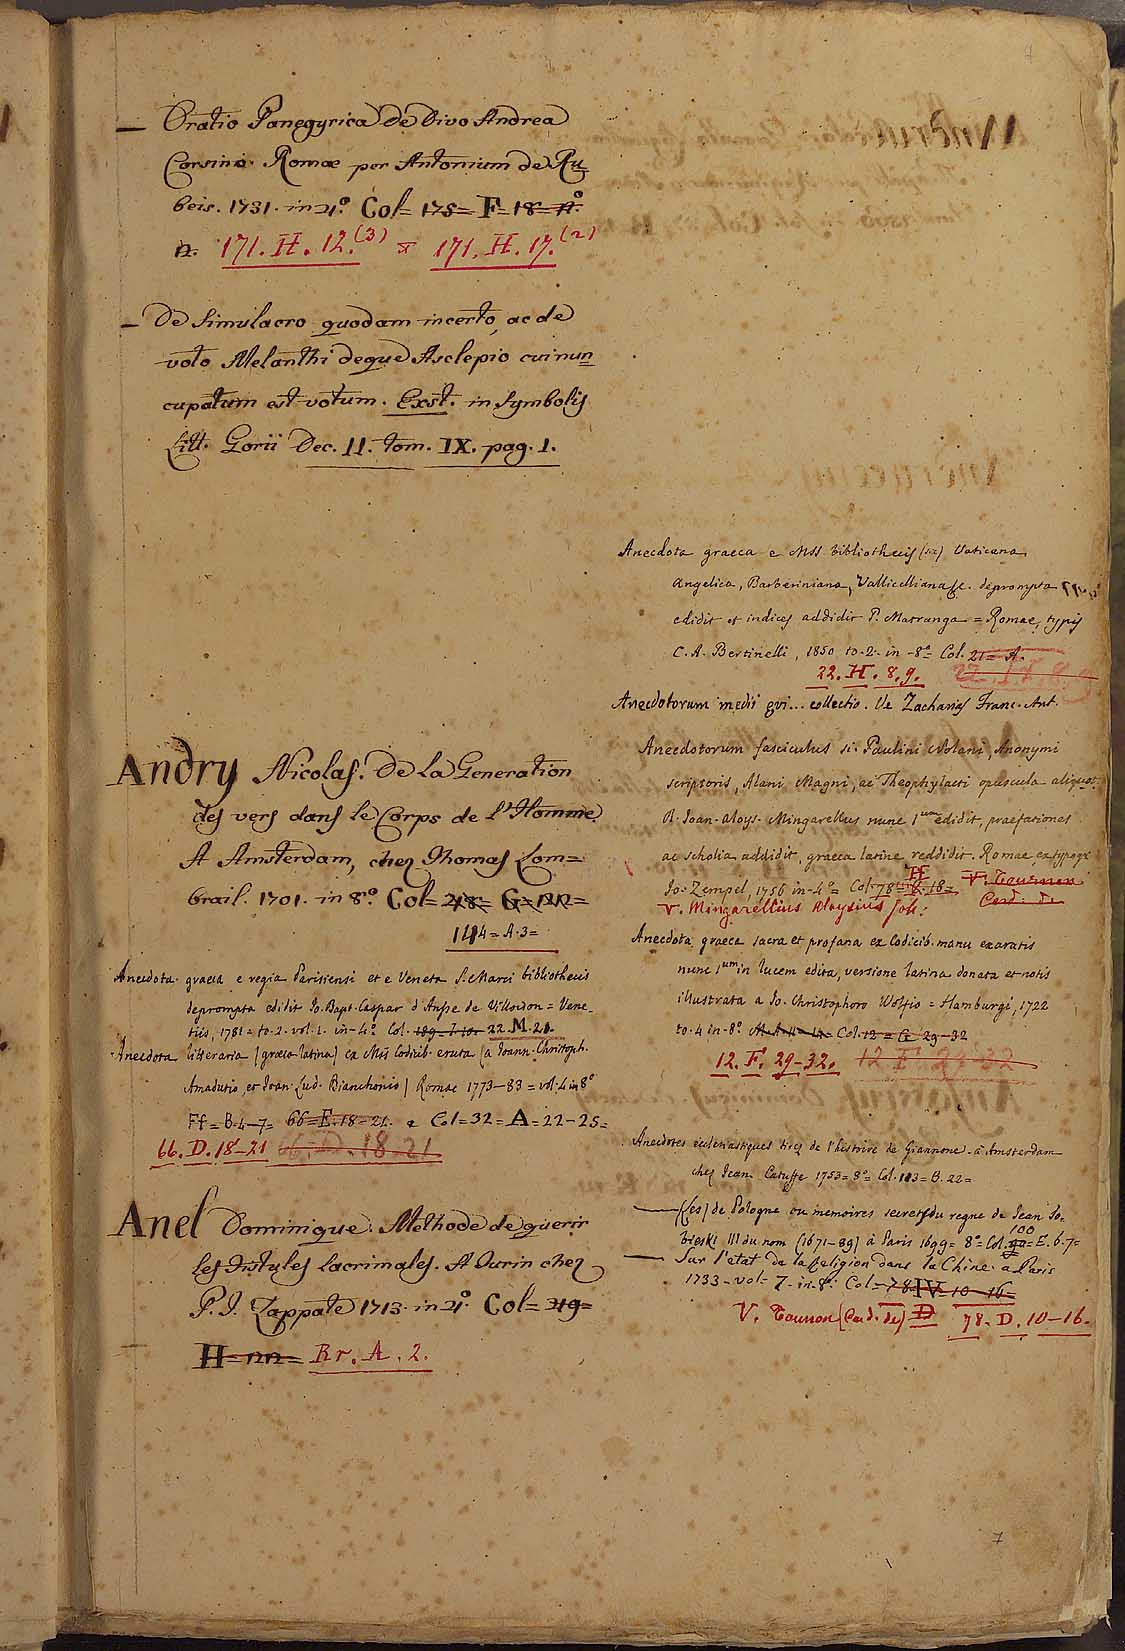 — Oratio Panegyrica de Divo Andrea
Corsino. Romae per Antonium de Ru-
beis. 1731. in 4.º Col= 175= F= 18= 
n. 171. H. 12.(3) 171. H. 17.(2)
— De Simulacro quodam incerto, ac de
voto Melanthi deque Asclepio cui nun
cupatum est votum. Exst. in Symbolis
Litt. Gorii Dec. II. tom. IX. pag. 1.
Andry Nicolas. De la Generation
des vers dans le Corps de l'Homme
A Amsterdam, chez Thomas Lom=
brail. 1701. in 8.º Col= 
114= A. 3=
Anecdota graeca e regia Parisiensi et e Veneta S. Marci bibliothecis
deprompta edidit Jo. Bapt. Caspar d'Ansse de Villoison = Vene-
tiis, 1781 = to. 2. vol. 1. in-4.º Col. 22. M. 20.
Anecdota litteraria (graeco latina) ex Mss Codicib. eruta (a Joann. Christoph.
Amadutio, et Joan. Lud. Bianchonio) Romae 1773-83 = vol. 4 in 8º
Ff = B. 4-7= 66= E. 18-21. e Col= 32= A= 22-25=
66. D. 18-21 66. D. 18-21
Anel Dominique. Methode de guerir
les Fistules Lacrimales. A Turin chez
P. J. Zappate 1713. in 4.º Col= 49=
H= nn= Rr. A. 2.
Anecdota graeca e Mss bibliothecis (sic) Vaticana,
Angelica, Barberiniana, Vallicelliana &c. deprompta
edidit et indices addidit P. Matranga = Romae, typis
C. A. Bertinelli, 1850 to. 2. in-8º= Col. 21= A.
22. H. 8. 9. 22. H. 8. 9
Anecdotorum medii aevi... collectio. Ve Zacharias Franc. Ant.
Anecdotorum fasciculus si. Paulini Nolani, Anonymi
scriptoris, Alani Magni, ac Theophylacti opuscula aliquot
A. Joan. Aloys. Mingarellus nunc 1um edidit, praefationes
ac scholia addidit, graeca latine reddidit. Romae, ex typogr.
Jo. Zempel, 1756 in-4º= Col. 78= H 18= V. Tournon
V. Mingarellius Aloysius Joh: Card: de
Anecdota graeca sacra et profana ex Codicib. manu exaratis
nunc 1um in lucem edita, versione latina donata et notis
illustrata a Jo. Christophoro Wolfio = Hamburgi, 1722
to. 4 in-8º Col. 12= G 29-32
12. F. 29-32. 12 F. 29-32
Anecdotes ecclesiastiques tirés de l'histoire de Giannone. à Amsterdam
chez Jean Catuffe 1753= 8º= Col. 103= B. 22=
— (les) de Pologne ou memoires secrets du regne de Jean So-
bieski III du nom (1671-89) à Paris 1699= 8º= Col. 100= E. 6. 7=
— Sur l'etat de la Religion dans la Chine. à Paris
1733- vol= 7- in-8º. Col= 78. IV= 10-16=
V. Tournon (Card. de) D 78. D. 10-16.
7